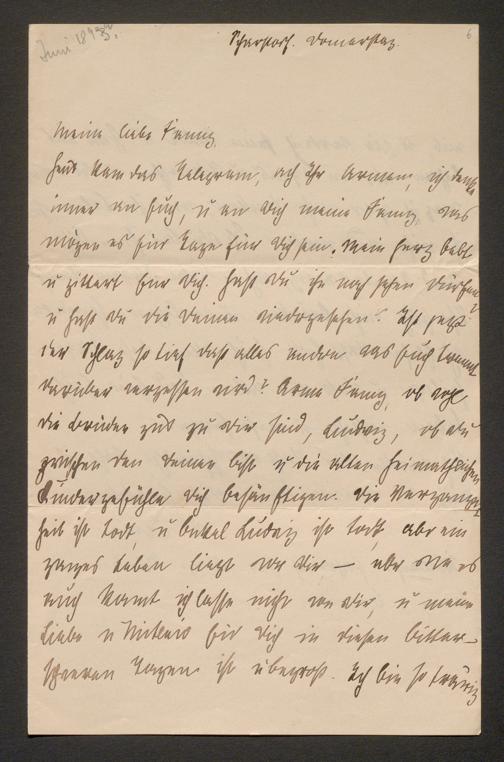 Juni 189
6
Donnerstag.
Meine liebe Fanny,
Heut kam das Telegram, ach Ihr Armen, ich denke
immer an Euch, u an Dich meine Fanny was
mögen es für Tage für Dich sein. Mein Herz bebt
u zittert für Dich. Hast Du ihn noch sehen dürfen
u hast Du die Deinen wiedergesehen? Ist jetzt
der Schlag so tief daß alles andre was Euch trennt
darüber vergessen wird? Arme Fanny, ob wohl
die Brüder gut zu Dir sind, Ludwig, ob Du
zwischen den Deinen bist u die alten heimathlichen
Kindergefühle Dich besänftigen. Die Vergangen-
heit ist todt, u Onkel Ludwig ist todt, aber ein
ganzes Leben liegt vor Dir — aber wie es
auch kommt ich lasse nicht von Dir, u meine
Liebe u Mitleid für Dich in diesen bitter-
schweren Tagen ist übergroß. Ich bin so traurig